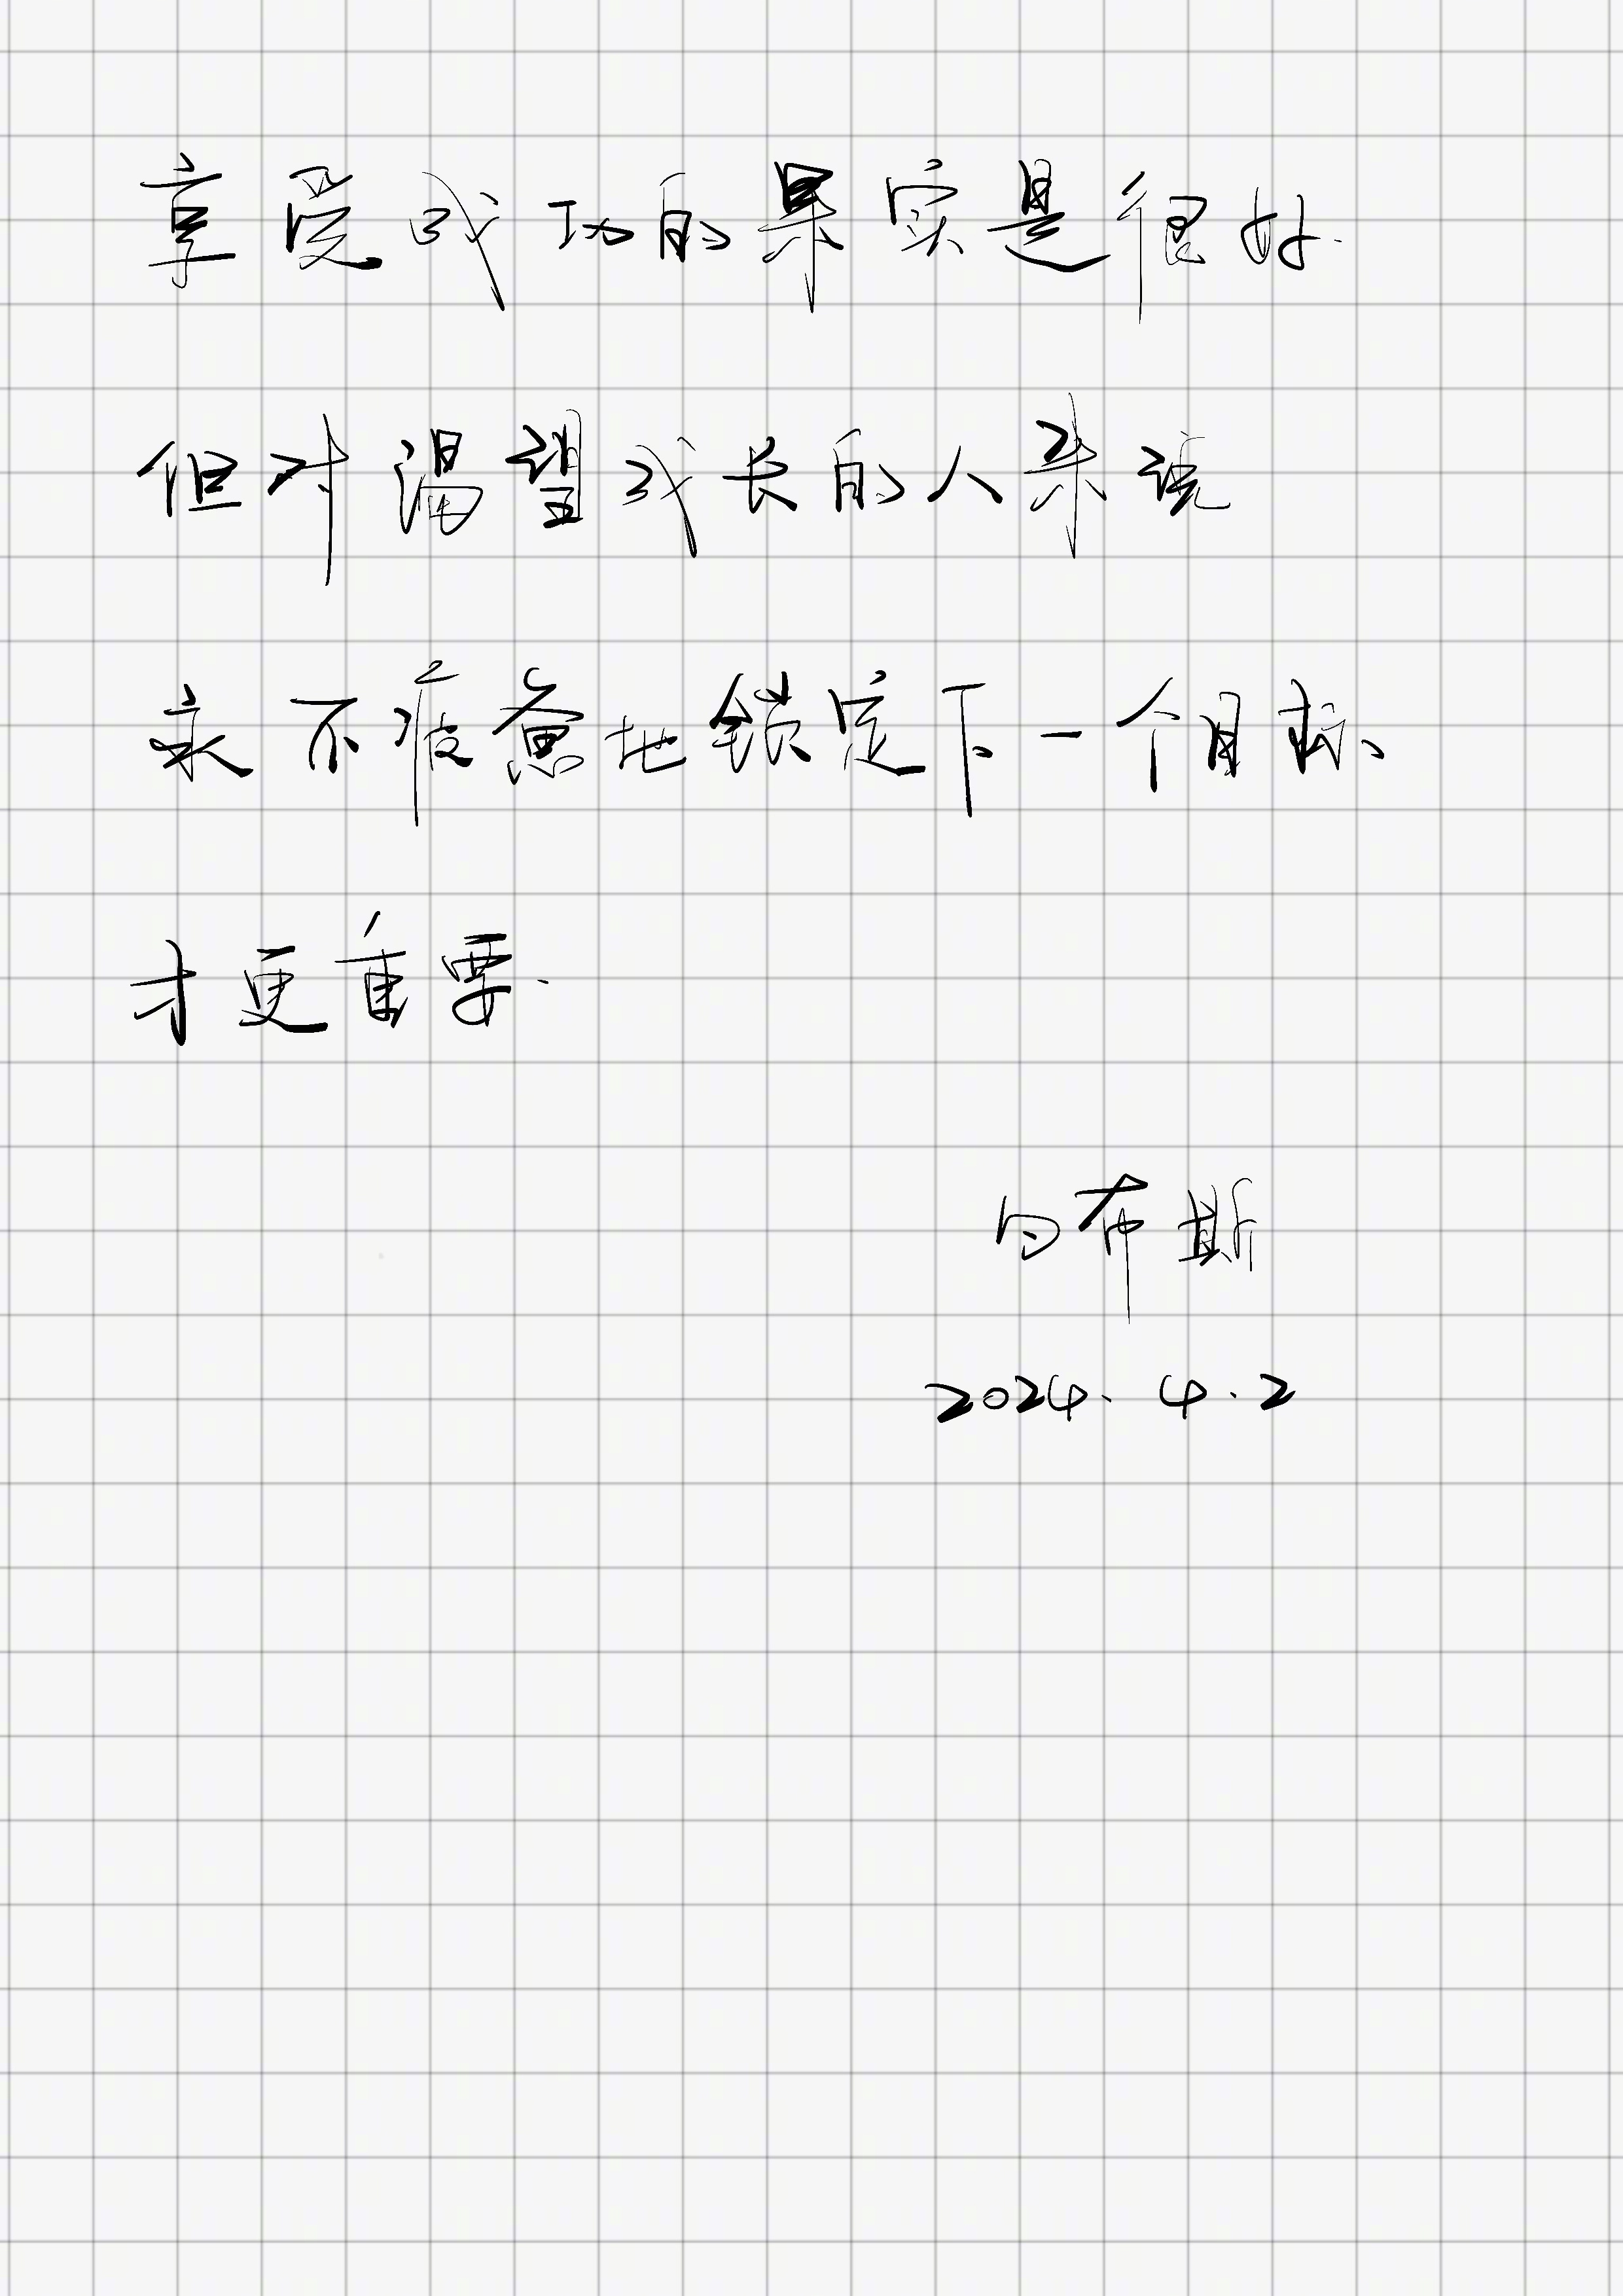 享受成功的果实是很好.
但对渴望成长的人来说
永不疲惫地锁定下一个目标、
才更重要.
布斯
2024.4.2